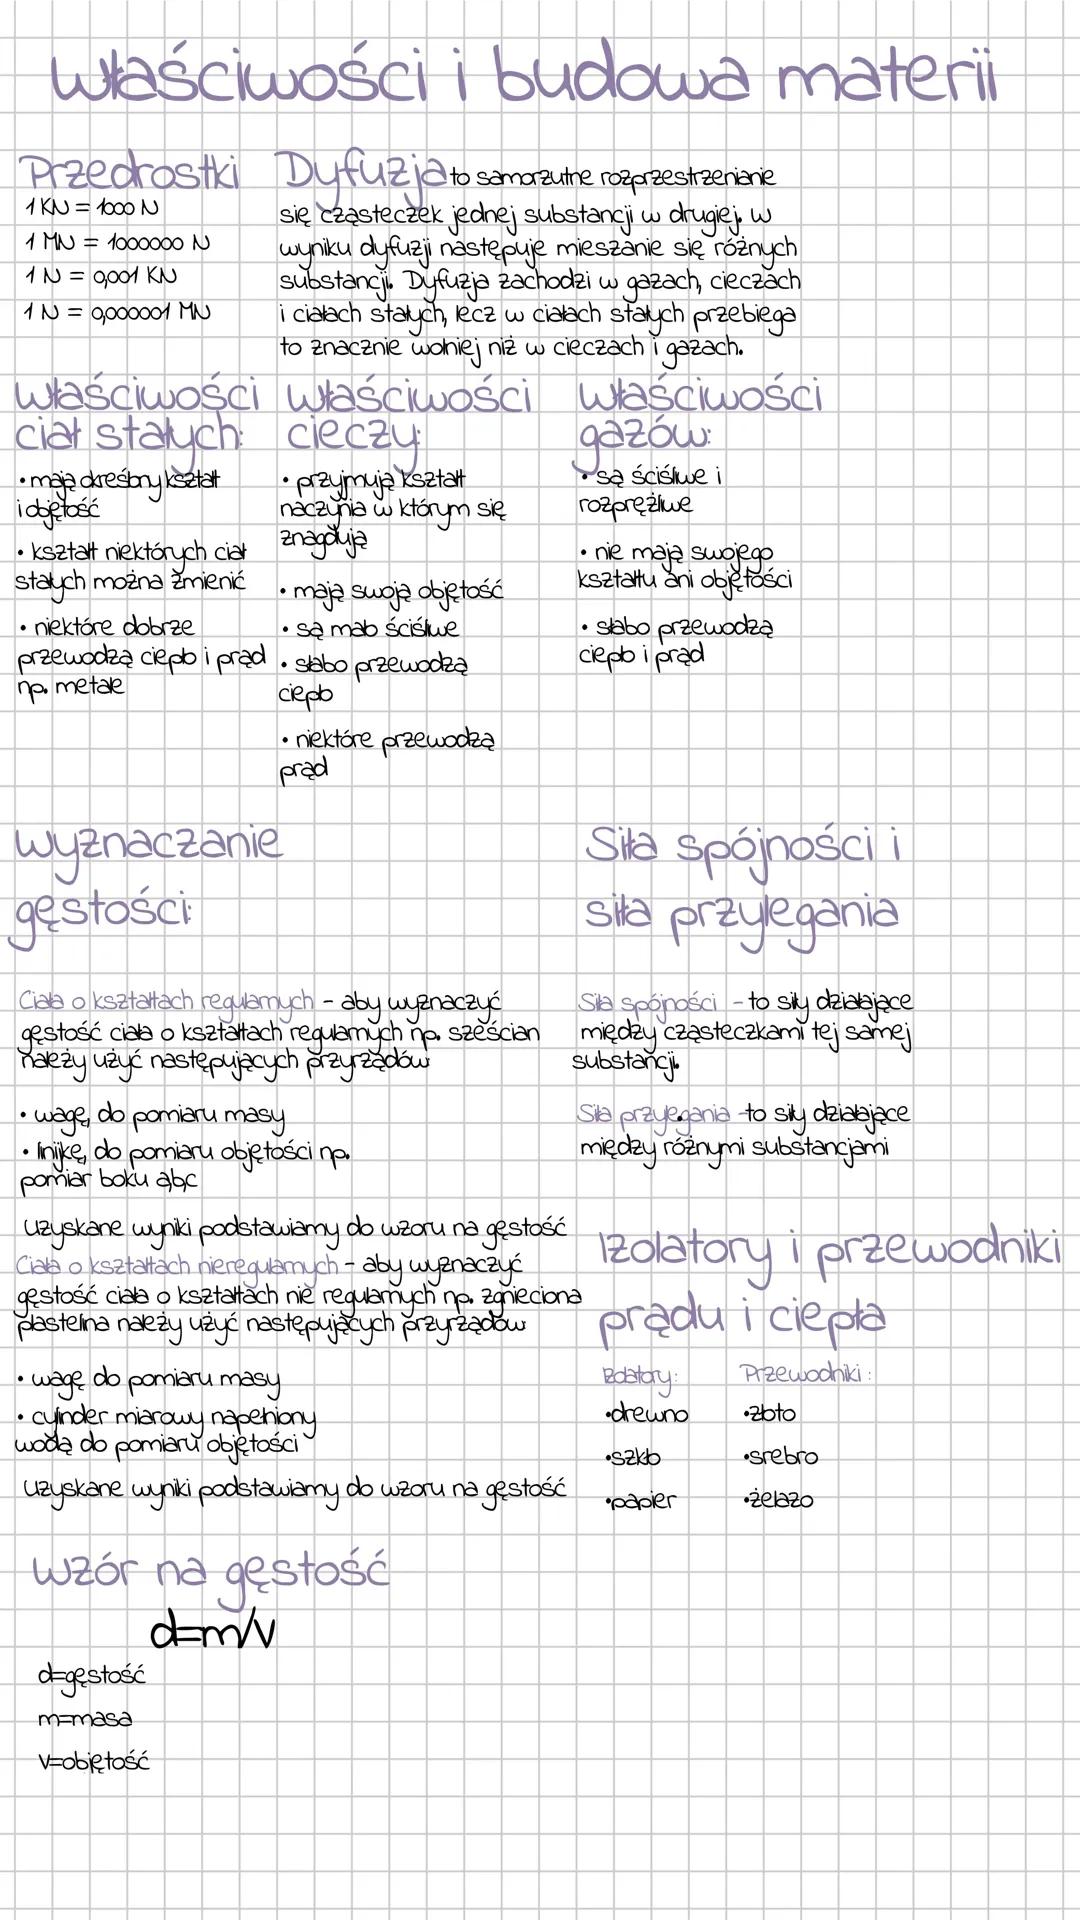 właściwości i budowa materii
Przedrostki
1 KN = 1000 N
1 MN = 1000000 N
1 N = 0,001 KN
1 N = 0,000001 MN
Dyfuzja to samorzutne rozprzestrzenianie
się cząsteczek jednej substancji w drugiej. w
wyniku dyfuzji następuje mieszanie się różnych
substancji. Dyfuzja zachodzi w gazach, cieczach
i ciałach stałych, lecz w ciałach stałych przebiega
to znacznie wolniej niż w cieczach i gazach.
właściwości
ciał stałych:
• mają określony kształt
i objętość
• kształt niektórych ciał
stałych można zmienić
• niektóre dobrze
przewodzą ciepło i prąd
np. metale
właściwości
cieczy:
• przyjmują kształt
naczynia w którym się
znagdują
• mają swoją objętość
• są mało ściśliwe
• słabo przewodzą
ciepło
• niektóre przewodzą
prąd
właściwości
gazów:
• są ściśliwe i
rozprężliwe
• nie mają swojego
kształtu ani objętości
• słabo przewodzą
ciepło i prąd
wyznaczanie
gęstości:
Ciała o kształtach regularnych - aby wyznaczyć
gęstość ciała o kształtach regularnych np. sześcian
należy użyć następujących przyrządów:
• wagę, do pomiaru masy
• linijkę, do pomiaru objętości np.
pomiar boku a,b,c
uzyskane wyniki podstawiamy do wzoru na gęstość
Ciała o kształtach nieregularnych - aby wyznaczyć
gęstość ciała o kształtach nie regularnych np. zgnieciona
plastelina należy użyć następujących przyrządów:
• wagę do pomiaru masy
• cylinder miarowy napełniony
wodą do pomiaru objętości
uzyskane wyniki podstawiamy do wzoru na gęstość
Siła spójności i
siła przylegania
Siła spójności - to siły działające
między cząsteczkami tej samej
substancji.
Siła przylegania -to siły działające
między różnymi substancjami
Izolatory i przewodniki
prądu i ciepła
Izolatory:
•drewno
•szkło
•papier
Przewodniki:
•złoto
•srebro
•żelazo
wzór na gęstość
d=m/v
d=gęstość
m=masa
v=objętość